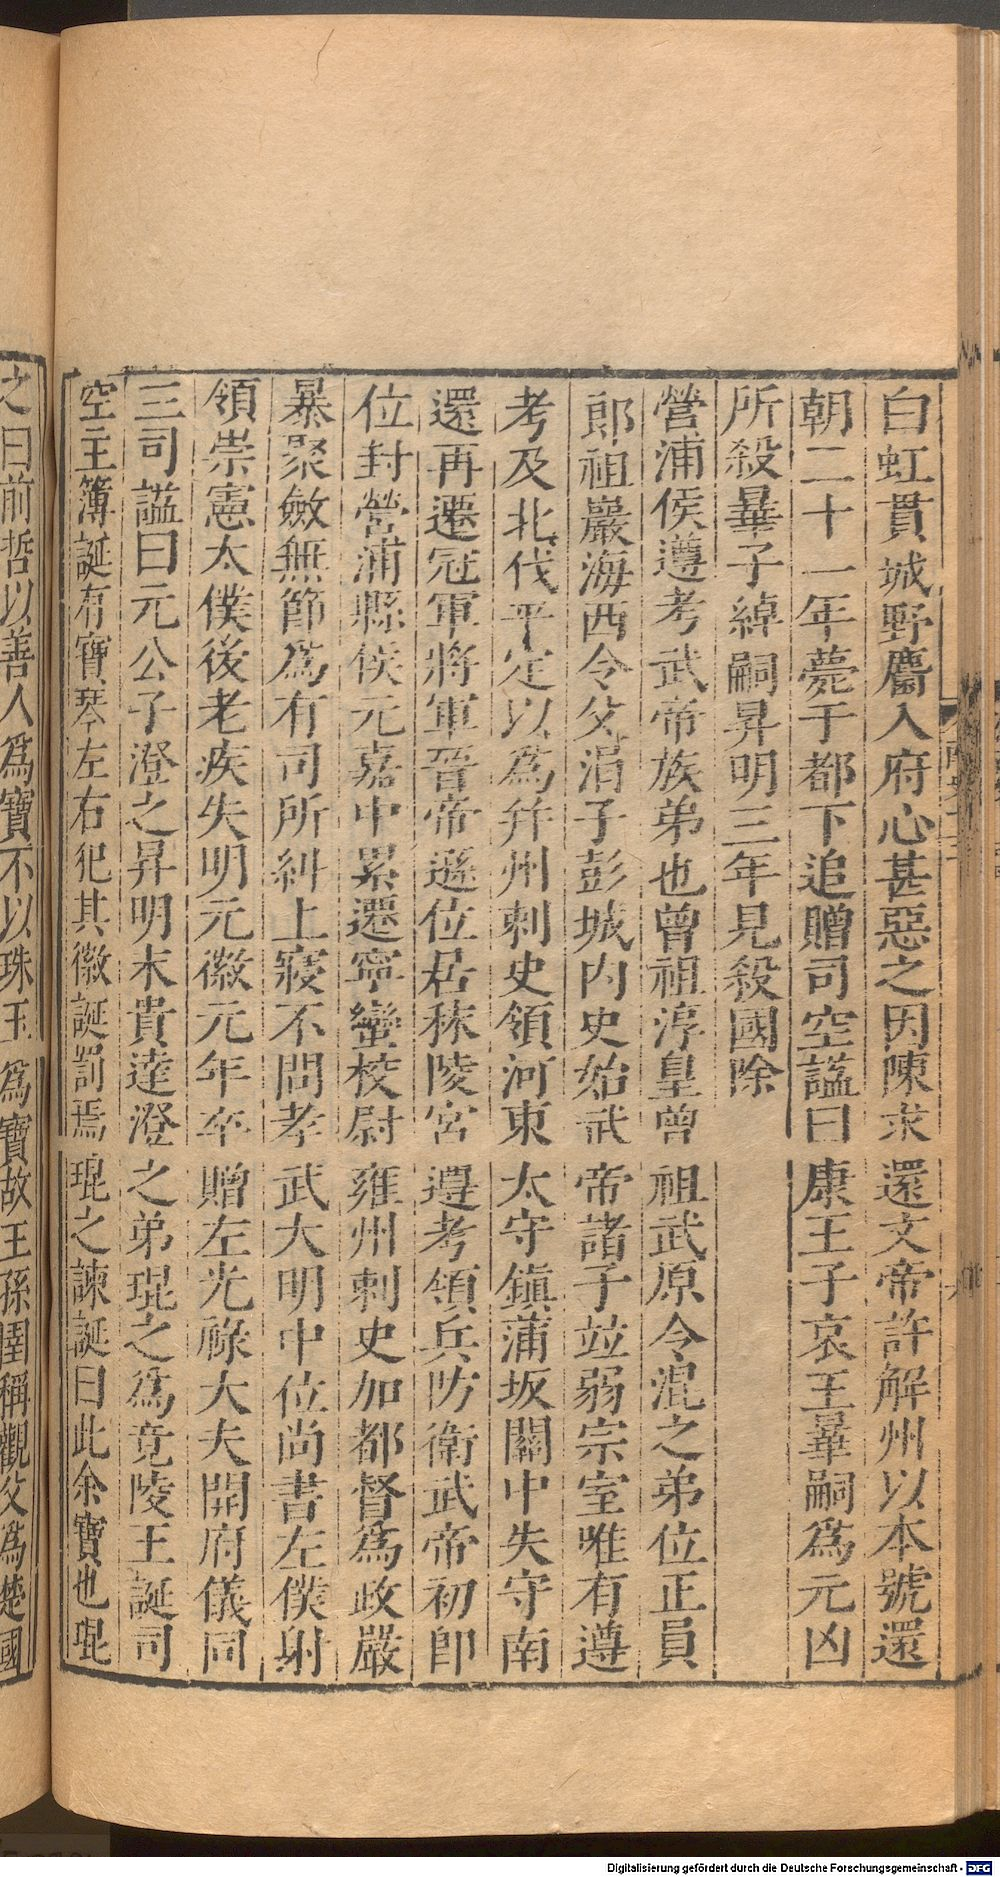 白虹貫城野麕入府心甚惡之因陳求還文帝許解州以本號還
朝二十一年薨于都下追贈司空謚曰康王子哀王瞱嗣爲元凶
所殺瞱子綽嗣昇明三年見殺國除
營浦侯遵考武帝族弟也曾祖淳皇曾祖武原令混之弟位正員
郎祖巖海西令父涓子彭城內史始武帝諸子竝弱宗室唯有遵
考及北伐平定以爲并州刺史領河東太守鎮蒲坂關中失守南
還再遷冠軍將軍晉帝遜位居秣陵宮遵考領兵防衛武帝初即
位封營浦縣侯元嘉中累遷寧蠻校尉雍州刺史加都督爲政嚴
暴聚斂無節爲有司所糾上寢不問孝武大明中位尚書左僕射
領崇憲太僕後老疾失明元徽元年卒贈左光祿大夫開府儀同
三司謚曰元公子澄之昇明末貴達澄之弟琨之爲竟陵王誕司
空主簿誕有寶琴左右犯其徽誕罰焉琨之諫誕曰此余寶也琨
之曰前哲以善人爲寶不以珠玉爲寶故王孫圉稱觀父爲楚國
Digitalisierung gefördert durch die Deutsche Forschungsgemeinschaft - DFG